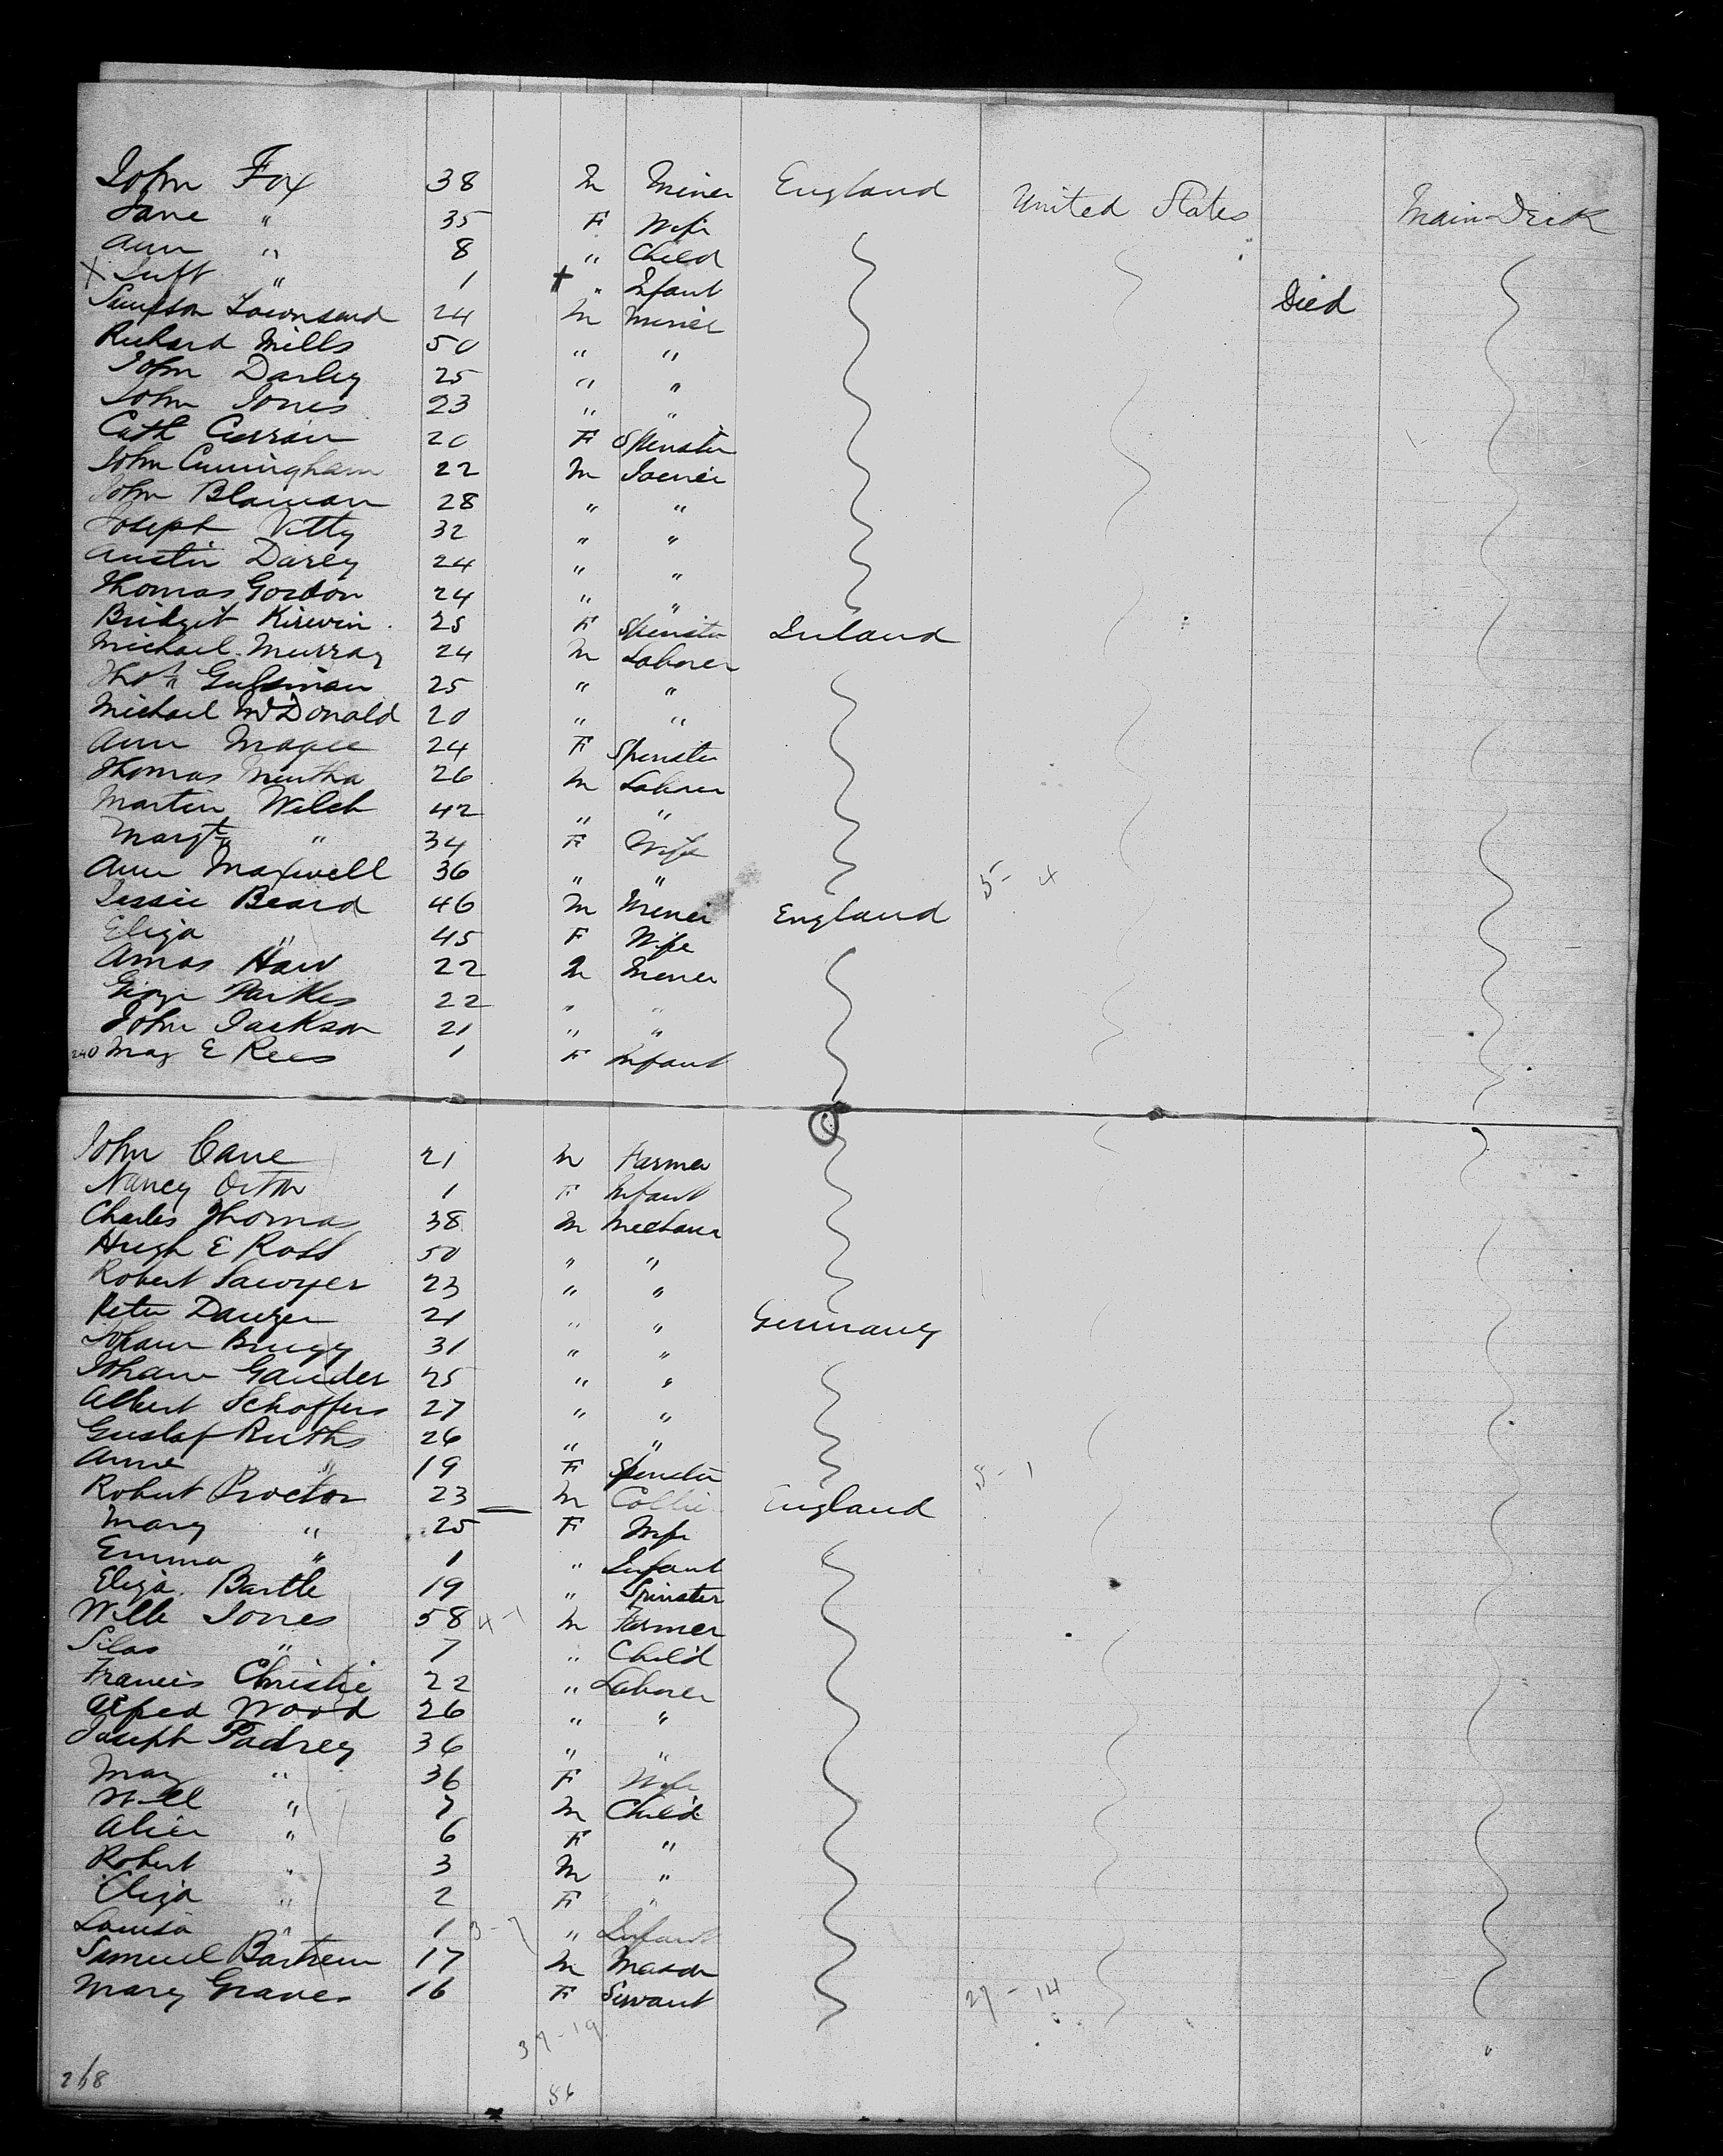 John Fox 38 M Miner England United States Main Deck
Jane " 35 F Wife
Ann " 8 " Child
X " 1 † " Infant Died
Sampson Townsend 24 M Miner
Richard Mills 50 " "
John Darley 25 " "
John Jones 23 " "
Cath Curran 20 F Spinster
John Cuningham 22 M
John Blaman 28 " "
Joseph Vitty 32 " "
Austin Darcy 24 " "
Thomas Gordon 24 " "
Bridget Kirwin 25 F Spinster Ireland
Michael Murray 24 M Laborer
Thos 25 " "
Michael McDonald 20 " "
Ann Magee 24 F Spinster
Thomas Murtha 26 M Laborer
Martin Welch 42 " "
Margt " 34 F Wife
Ann Maxwell 36 " " 5 - 4
Jessie Beard 46 M Miner England
Eliza " 45 F Wife
Amos Haw 22 M Miner
George Parkes 22 " "
John Jackson 21 " "
240 May E Rees 1 F Infant
John Cane 21 M Farmer
Nancy Orton 1 F Infant
Charles Thomas 38 M Mechanic
Hugh E Ross 50 " "
Robert Sawyer 23 " "
Peter Danzen 21 " " Germany
Johann Bruyy 31 " "
Johann Gander 25 " "
Albert Schoffers 27 " "
Gustaf Ruths 26 " "
Anne " 19 F Spinster 5 - 1
Robert Proctor 23 — M Collier England
Mary " 25 F Wife
Emma " 1 " Infant
Eliza Bartle 19 " Spinster
Willm Jones 58 4 - 1 M Farmer
Silas " 7 " Child
Francis Christie 22 " Laborer
Alfred Wood 26 " "
Joseph Padrey 36 " "
May " 36 F Wife
Will " 7 M Child
Alice " 6 F "
Robert " 3 M "
Eliza " 2 F "
Louisa " 1 3 - 7 " Infant
Samuel Bartrem 17 M Mason
Mary Graves 16 F Servant 27 - 14
37 - 19
268 56